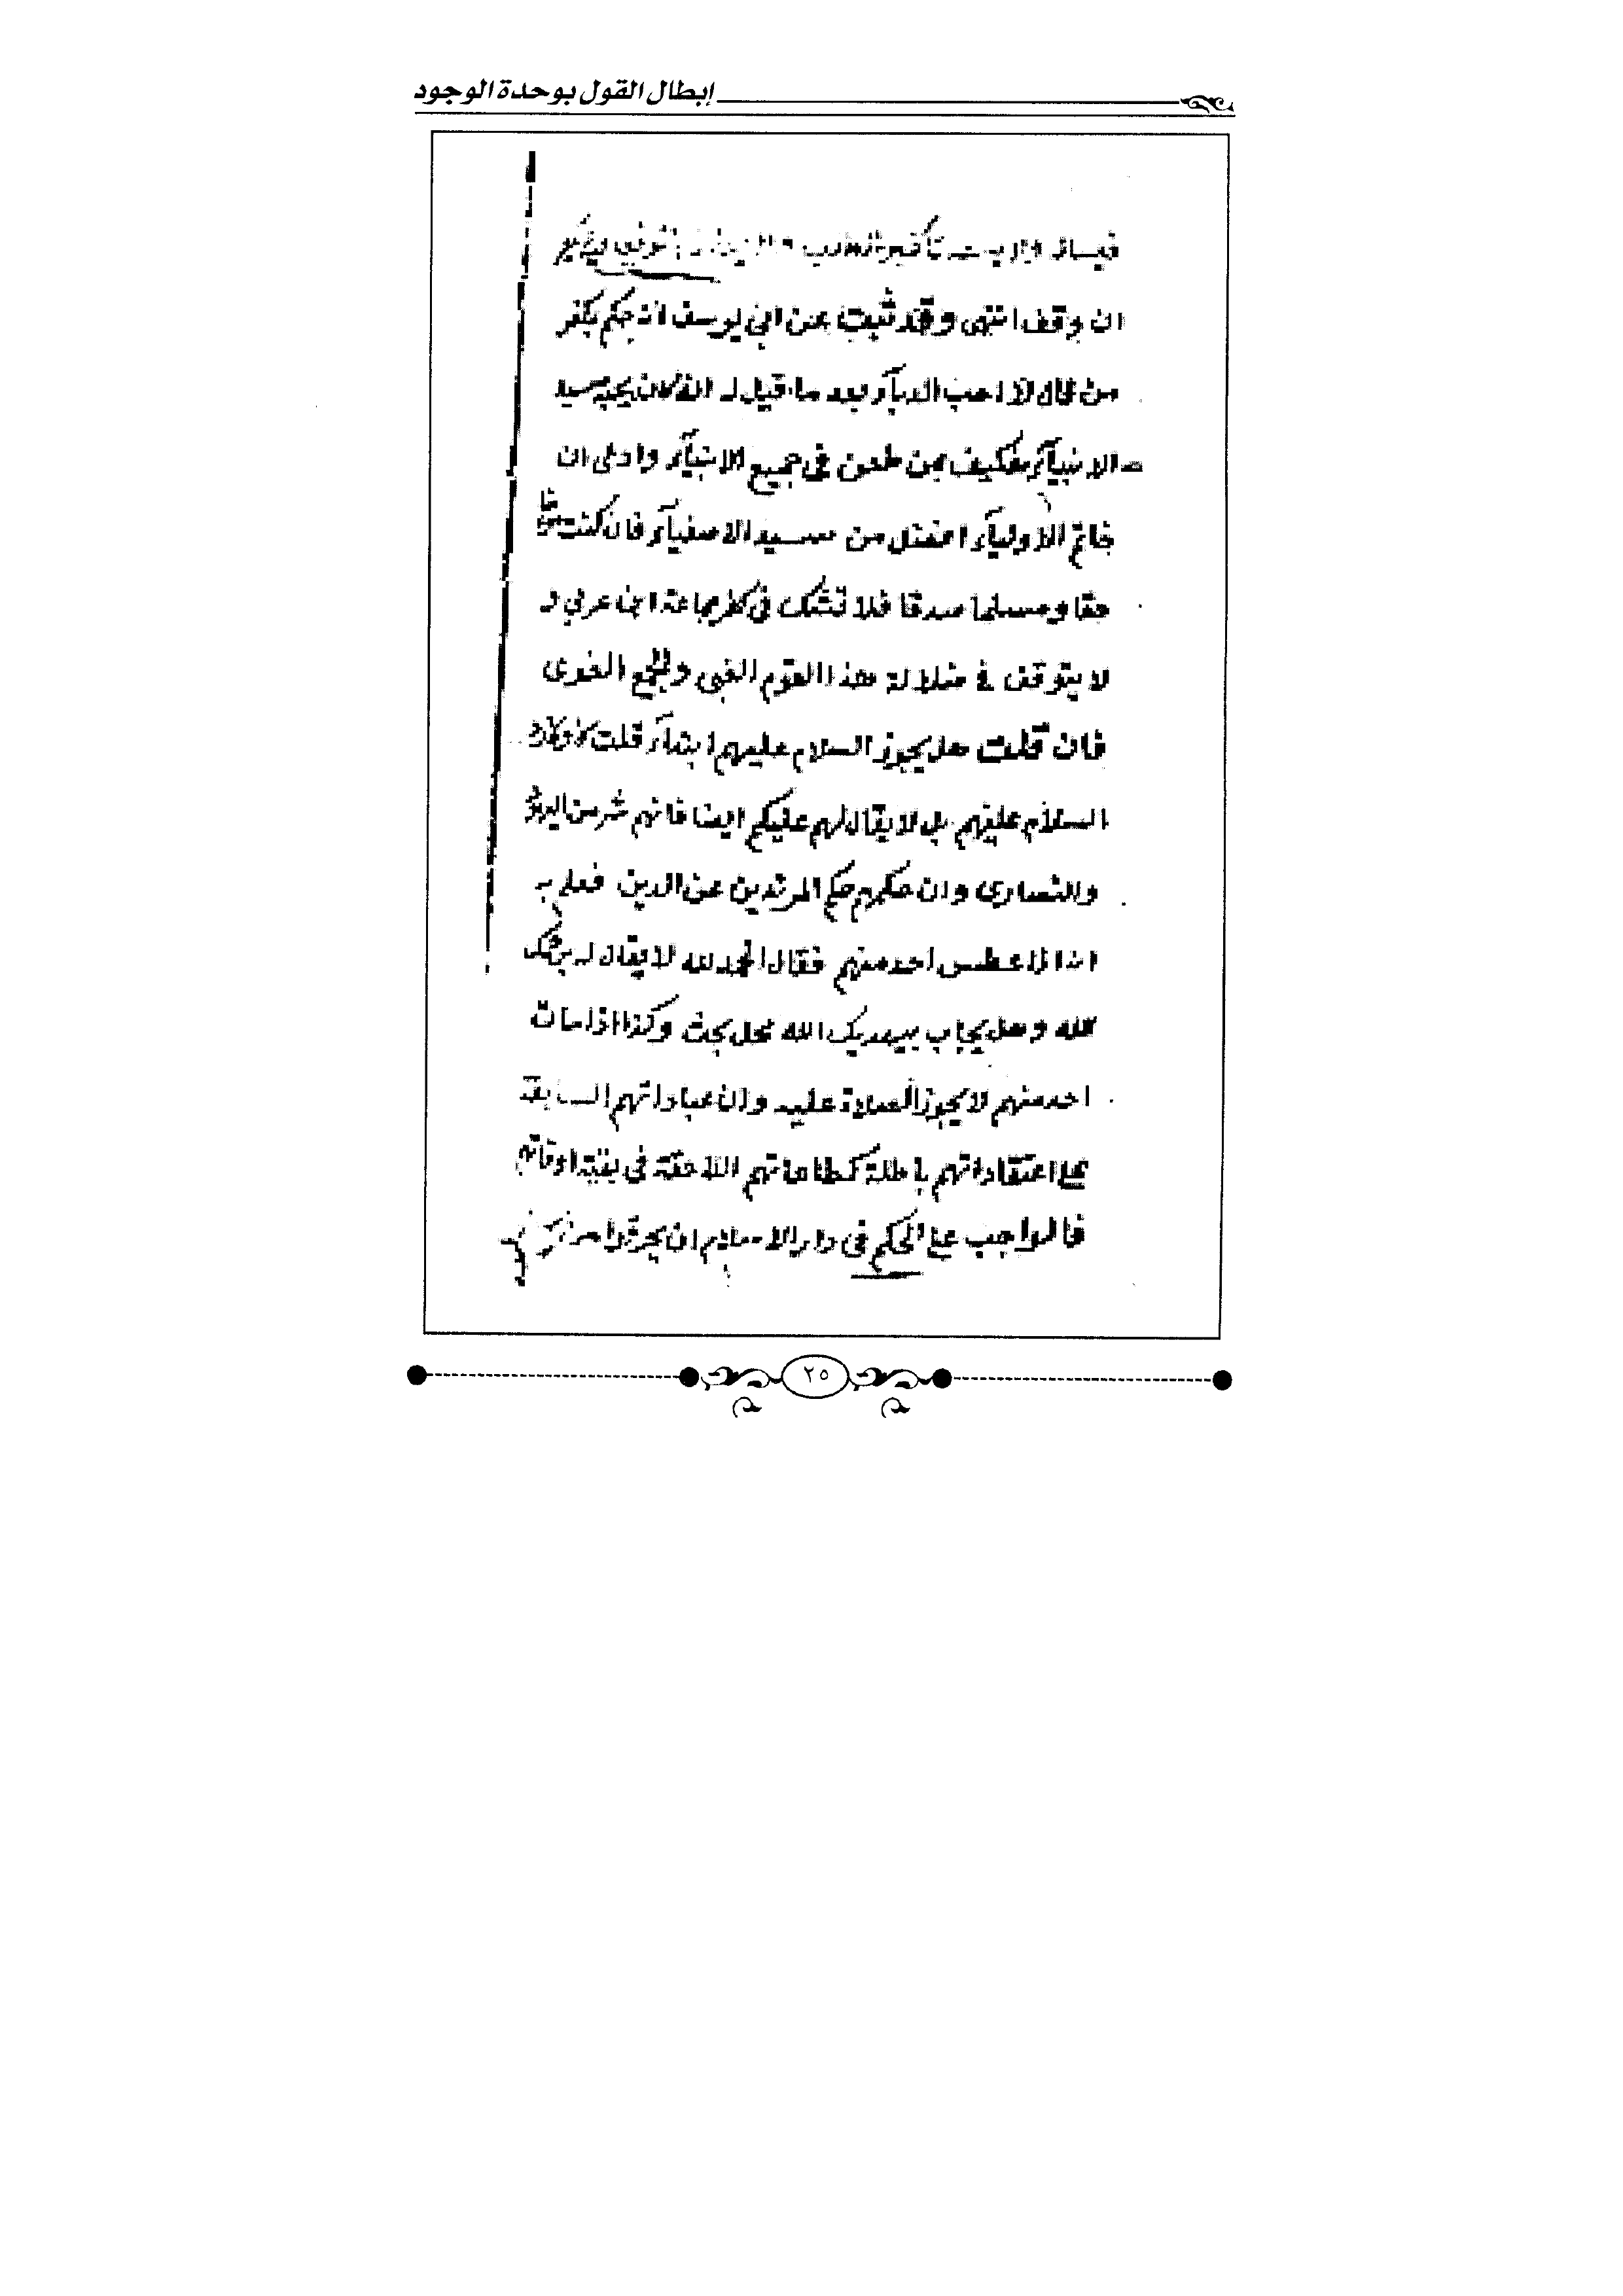 إبطال القول بوحدة الوجود
ان وقف انتهى وقد ثبت عن ابي يوسف انه حكم بكفر
من قال لا احب الدبآء بعد ما قيل له انه كان يحبه سيد
الانبيآء فكيف بمن طعن في جميع الانبيآء وادعى ان
خاتم الاوليآء افضل من سيد الاصفيآء فان كنت
حقا ومسلما صدقا فلا تشك في كفر جماعة ابن عربي و
لا يتوقف في ضلالة هذا القوم الغوى والجمع الغوى
فان قلت هل يجوز السلام عليهم ابتدآء قلت لا ولا رد
السلام عليهم بل لا يقال لهم عليكم ايضا فانهم شر من اليهود
والنصارى وان حكمهم حكم المرتدين عن الدين فعلم به
اذا عطس احد منهم فقال الحمد لله لا يقال له يرحمك
الله وهل يجاب بيهديك الله محل بحث وكذا اذا مات
احد منهم لا يجوز الصلاة عليه وان عباداتهم السابقة
على اعتقاداتهم باطلة كطاعاتهم اللاحقة في بقية اوقاتهم
فالواجب على الحكم في دار الاسلام ان يحرقوا من
٢٥